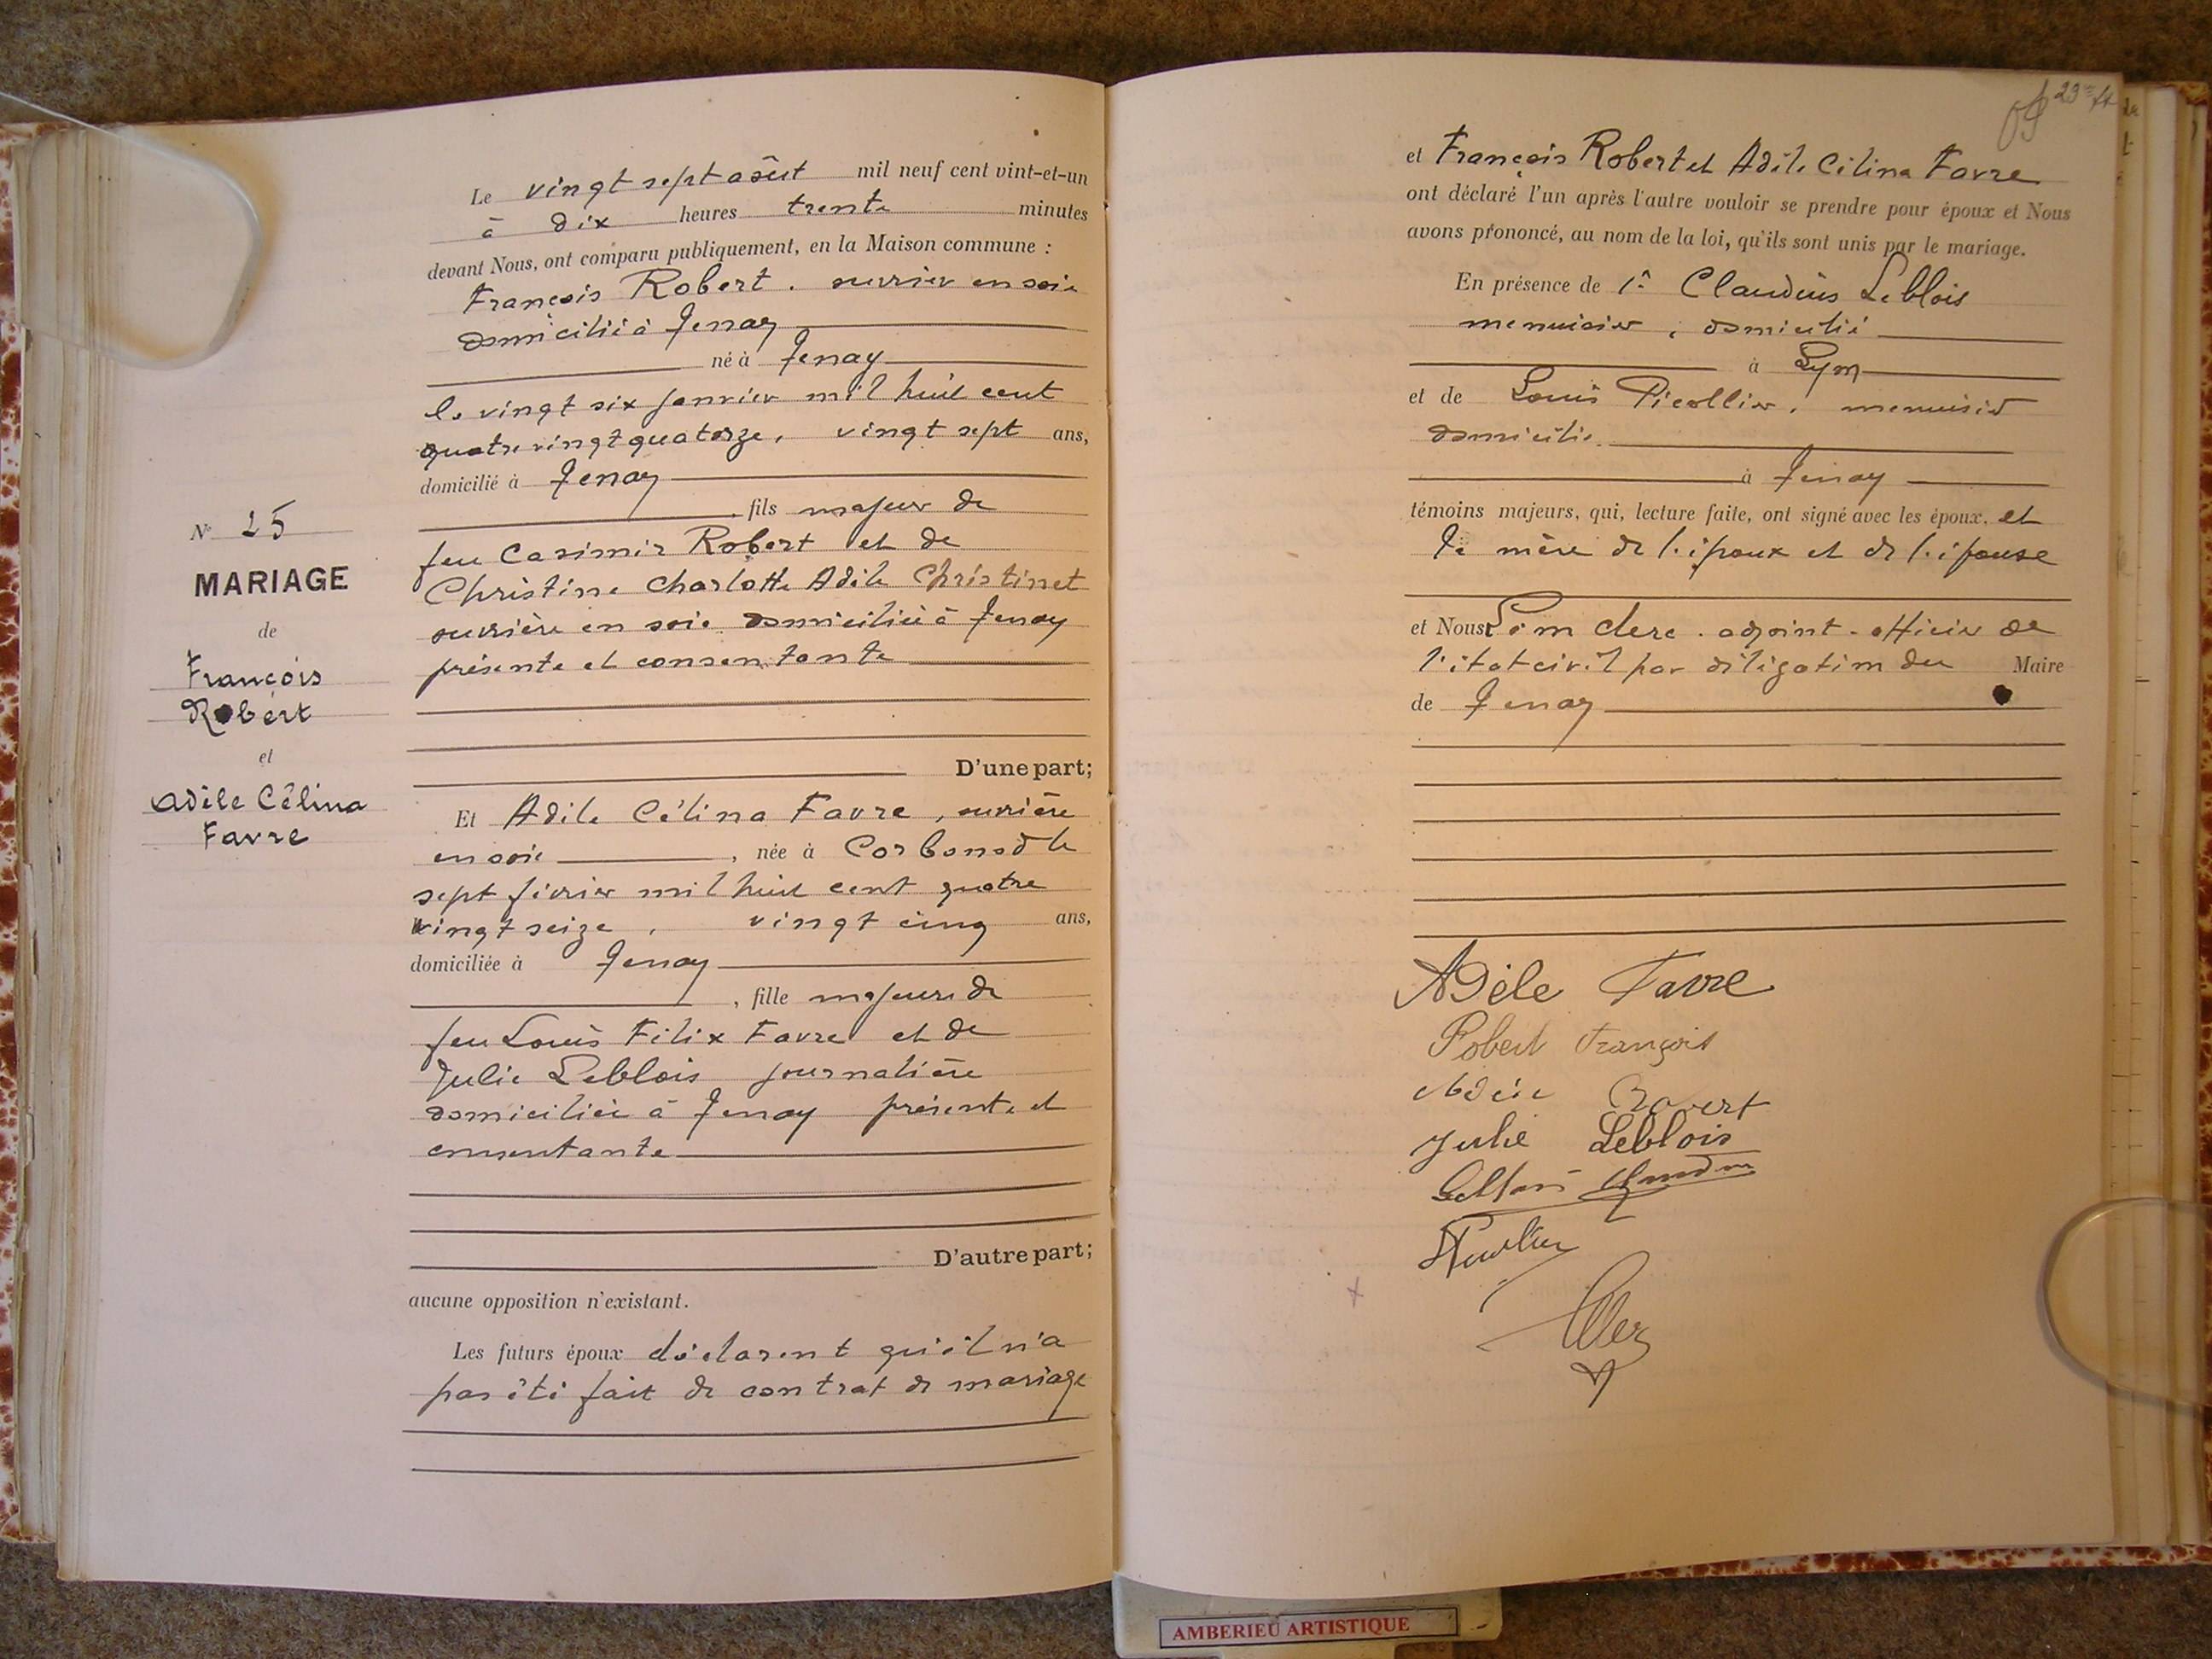 Le vingt sept août mil neuf cent vint-et-un
à dix heures trente minutes
devant Nous, ont comparu publiquement, en la Maison commune :
François Robert. ouvrier en soie
domicilié à Tenay
né à Tenay
le vingt six janvier mil huit cent
quatre vingt quatorze, vingt sept ans,
domicilié à Tenay
fils majeur de
feu Casimir Robert et de
Christine Charlotte Adèle Christinet
ouvrière en soie domiciliée à Tenay
présente et consentante
D'une part;
Et Adèle Célina Favre, ouvrière
en soie, née à Corbonod le
sept février mil huit cent quatre
vingt seize, vingt cinq ans,
domiciliée à Tenay
, fille majeure de
feu Louis Félix Favre et de
Julie Leblois journalière
domiciliée à Tenay présente et
consentante
D'autre part;
aucune opposition n'existant.
Les futurs époux déclarent qu'il n'a
pas été fait de contrat de mariage
N° 25
MARIAGE
de
François
Robert
et
Adèle Célina
Favre
et François Robert et Adèle Célina Favre
ont déclaré l'un après l'autre vouloir se prendre pour époux et Nous
avons prononcé, au nom de la loi, qu'ils sont unis par le mariage.
En présence de 1° Claudius Leblois
menuisier, domicilié
à Lyon
et de Louis Picollier, menuisier
domicilié
à Tenay
témoins majeurs, qui, lecture faite, ont signé avec les époux, et
la mère de l'époux et de l'épouse
et Nous Léon clerc. adjoint. officier de
l'état civil par délégation du Maire
de Tenay
Adèle Favre
Robert François
Adèle Robert
Julie Leblois
AMBERIEU ARTISTIQUE